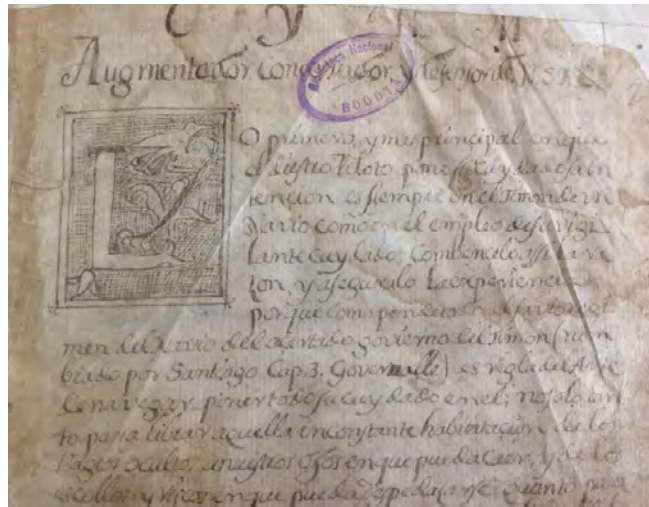 Augmentador Conservador y defensor de N. S.
Biblioteca Nacional
BOGOTA
LO primero, y mas principal en que
el diestro Piloto pone su cuydadosa in
tencion es siempre en el Timon de su
Navio como en el empleo de su vigi
lante cuydado. Combencelo assi la ra
zon, y aseguralo la experiencia
porque como pendiendo
men del Navio del acertado govierno del Timon (nom
brado por Santiago Cap. 3. Governalle) es regla del Arte
de navegar poner todo su cuydado en el; no solo
to para librar aquella inconstante habitacion de los
ocultos, a nuestros ojos en que pueda caer, y de los
escollos, y en que pueda despedasarse, quanto